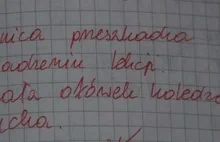 nica przeszkadza
adzeniu lekcji.
ała ołówek koledze